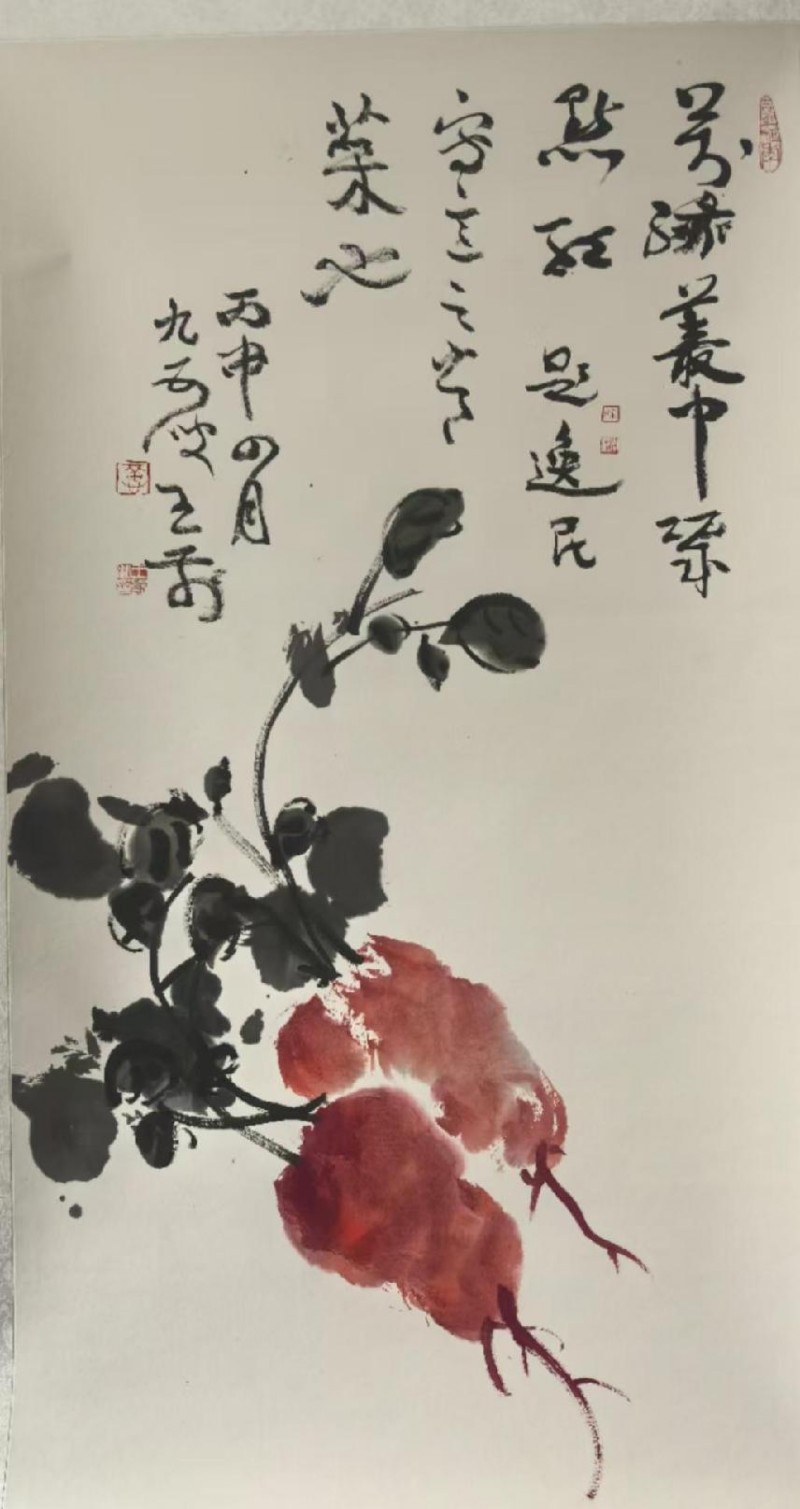 萬綠叢中
點紅 題逸民
寫意之
菜也
丙申四月
九五叟王